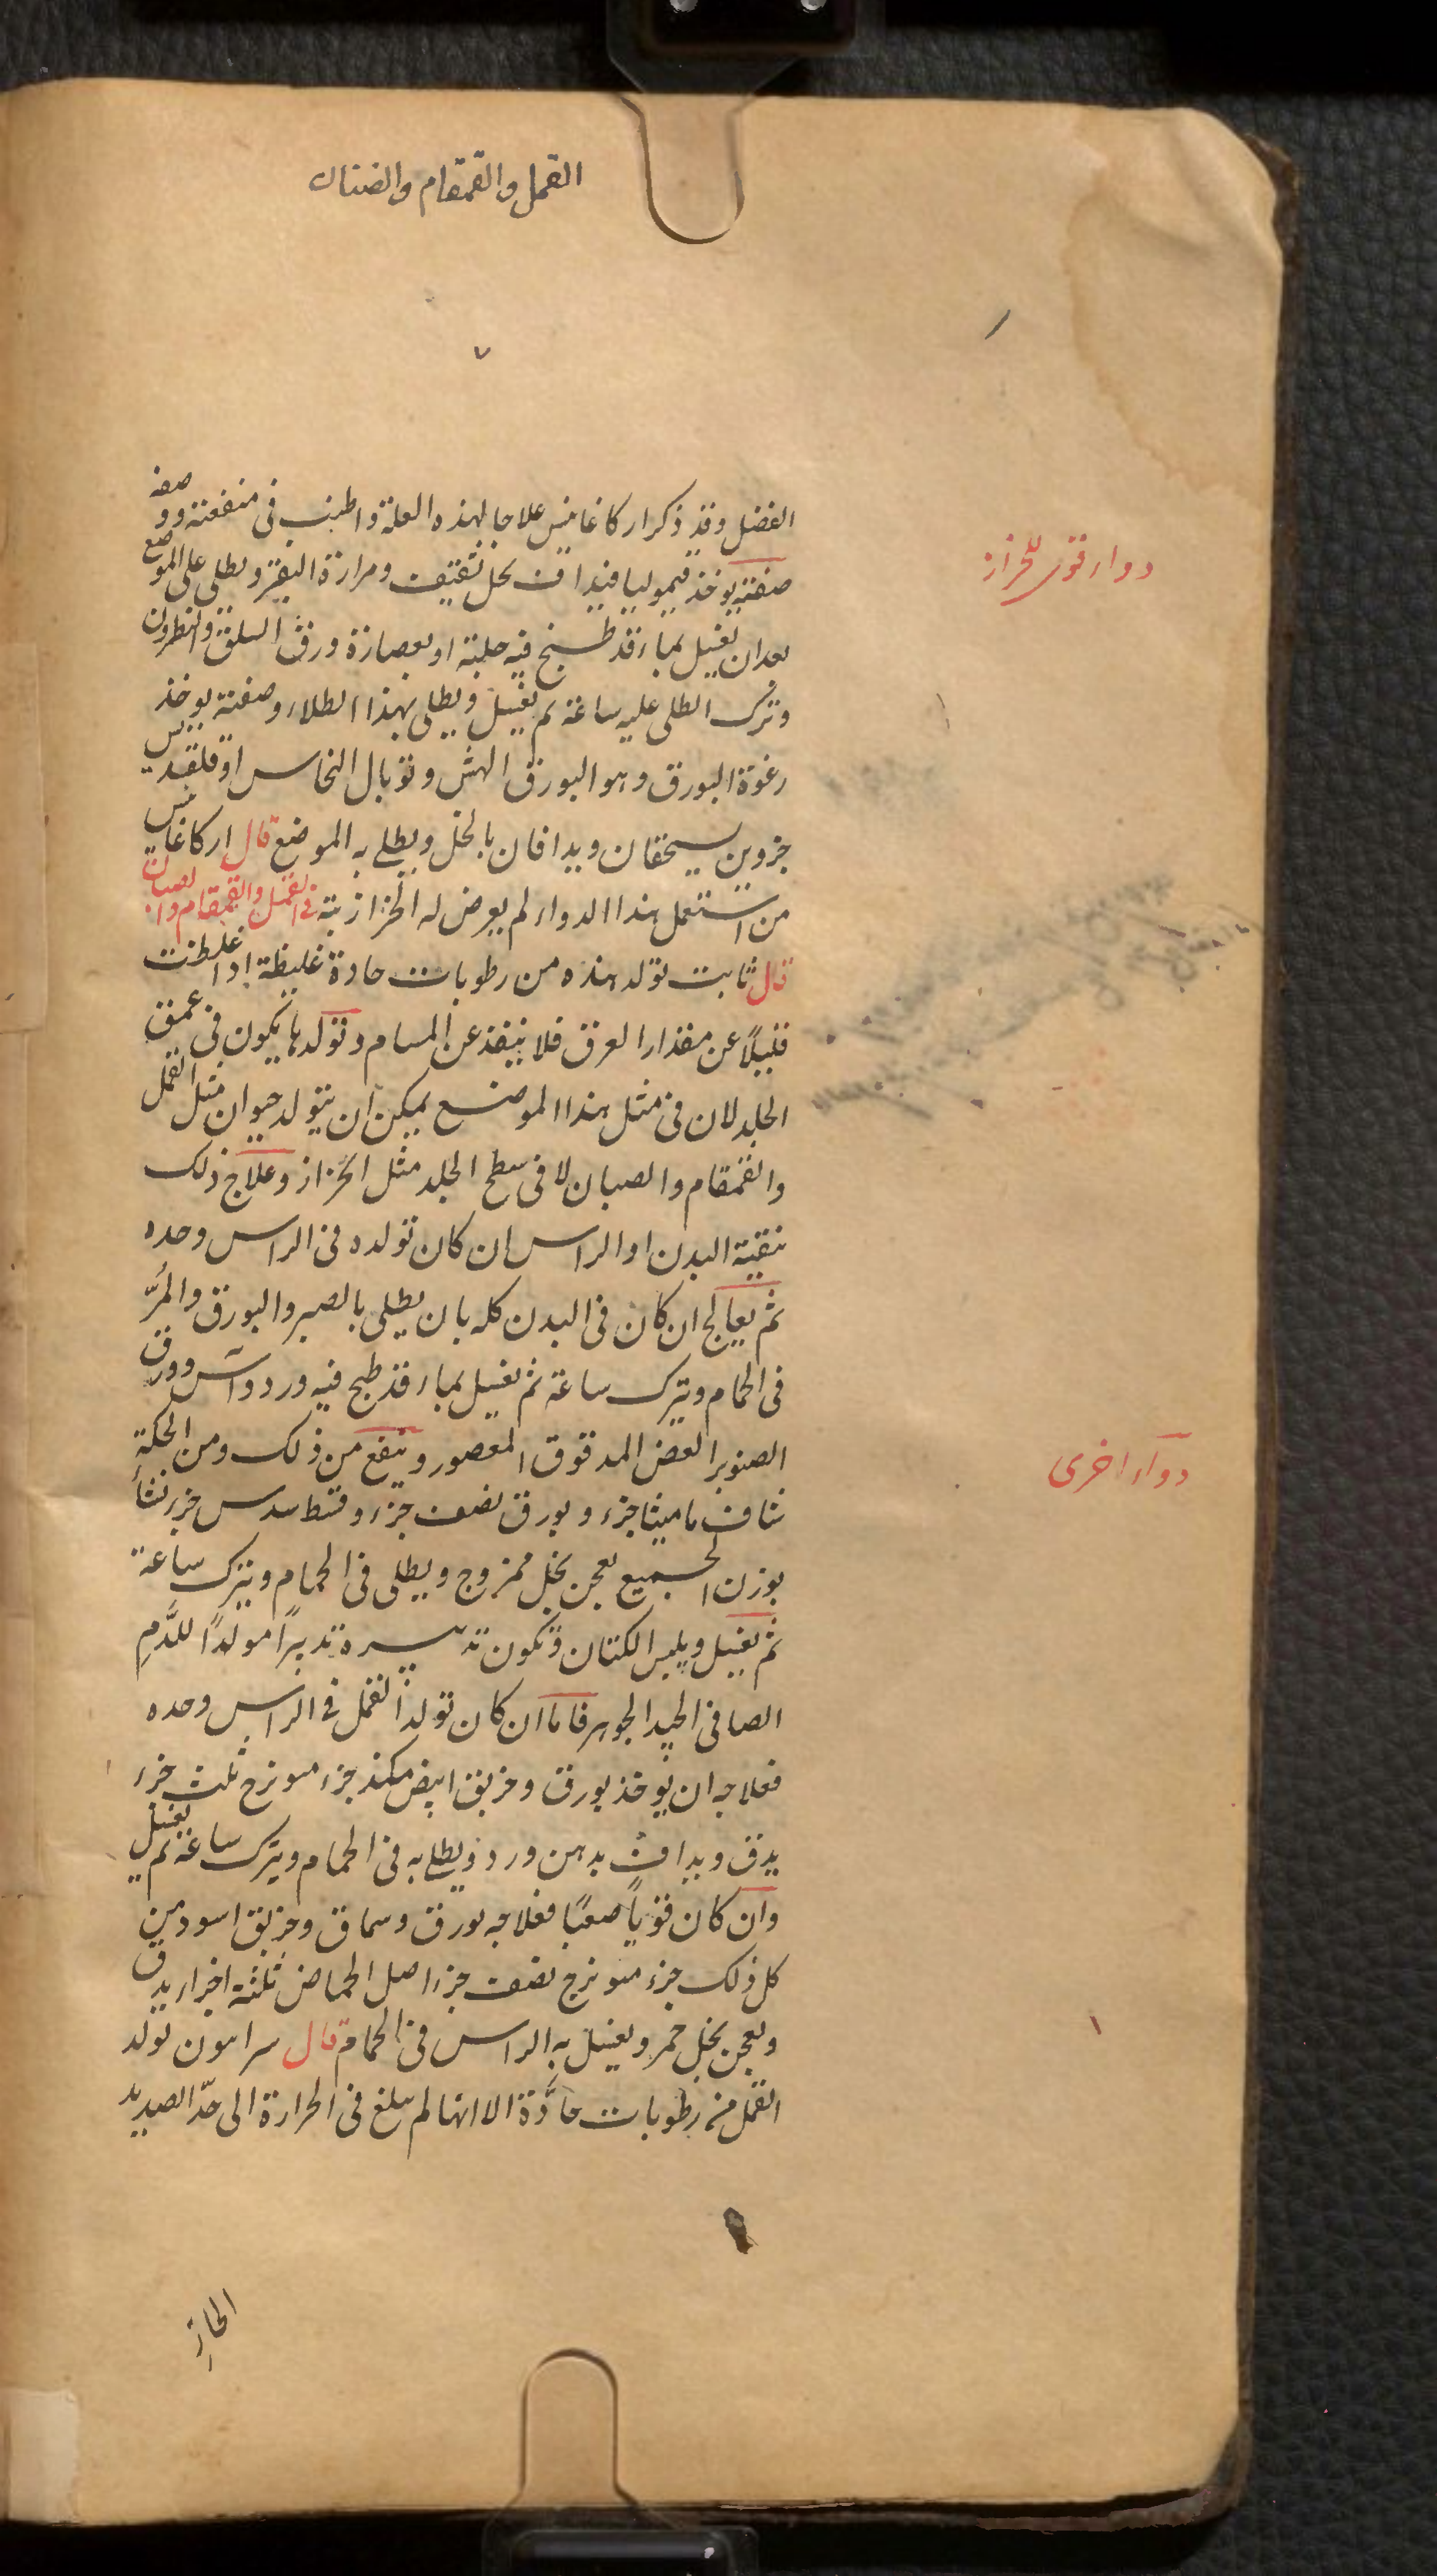 القمل والقمقام والصئبان
٧
الفضل وقد ذكر اركاغانيس علاجا لهذه العلة واطنب فى منفعته ووصفه
دواء قوى للحزاز
صفته يوخذ قيموليا فيداف بخل ثقيف ومرارة البقر ويطلى على الموضع
بعد ان يغسل بماء قد طبخ فيه حلبة او بعصارة ورق السلق والنطرون
وترك الطلى عليه ساعة ثم يغسل ويطلى بهذا الطلاء وصفته يوخذ
رغوة البورق وهو البورق الهش وتوبال النحاس او قلقديس
جزوين يسحقان ويدافان بالخل ويطلى به الموضع قال اركاغانيس
من استعمل هذا الدواء لم يعرض له الحزاز بتة فى القمل والقمقام والصبان
قال ثابت تولد هذه من رطوبات حادة غليظة اذا غلظت
قليلًا عن مقدار العرق فلا ينفذ عن المسام وتولدها يكون فى عمق
الجلد لان فى مثل هذا الموضع يمكن ان يتولد حيوان مثل القمل
والقمقام والصبان لا فى سطح الجلد مثل الحزاز وعلاج ذلك
تنقية البدن او الراس ان كان تولده فى الراس وحده
ثم يعالج ان كان فى البدن كله بان يطلى بالصبر والبورق والمُرّ
فى الحمام ويترك ساعة ثم يغسل بماء قد طبخ فيه ورد وآس وورق
الصنوبر الغض المدقوق المعصور وينفع من ذلك ومن الحكة
دوآء اخرى
شياف ماميثا جزء وبورق نصف جزء وقسط سدس جزء نشا
بوزن الجميع يعجن بخل ممزوج ويطلى فى الحمام ويترك ساعة
ثم يغسل ويلبس الكتان ويكون تدبيره تدبيرًا مولدًا للدَّمِ
الصافى الجيد الجوهر فاما ان كان تولد القمل فى الراس وحده
فعلاجه ان يوخذ بورق وخربق ابيض مكد جزء ميويزج ثلث جزء
يدق ويداف بدهن ورد ويطلى به فى الحمام ويترك ساعة ثم يغسل
وان كان قويًا صعبًا فعلاجه بورق وسماق وخربق اسود من
كل ذلك جزء ميويزج نصف جزء اصل الحماض ثلثة اجزاء يدق
ويعجن بخل خمر ويغسل به الراس فى الحمام قال سرابيون تولد
القمل من رطوبات حادَّة الا انها لم تبلغ فى الحرارة الى حدّ الصديد
الحار